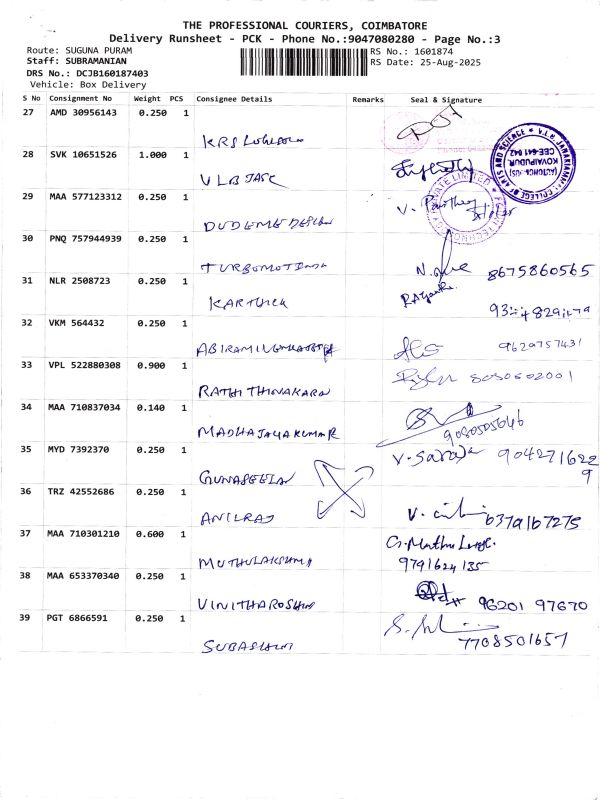 THE PROFESSIONAL COURIERS, COIMBATORE
Delivery Runsheet - PCK - Phone No.:9047080280 - Page No.:3
Route: SUGUNA PURAM
RS No.: 1601874
Staff: SUBRAMANIAN
RS Date: 25-Aug-2025
DRS No.: DCJB160187403
Vehicle: Box Delivery
S No Consignment No Weight PCS Consignee Details Remarks Seal & Signature
27 AMD 30956143 0.250 1
KRS
28 SVK 10651526 1.000 1
VLB JASC
29 MAA 577123312 0.250 1
V.
DUDEME DESIGN
30 PNQ 757944939 0.250 1
TURBOMOT
8675860565
31 NLR 2508723 0.250 1
KARTHICK
32 VKM 564432 0.250 1
ABIRAMI
9629757431
33 VPL 522880308 0.900 1
RATHI THINAKARAN
34 MAA 710837034 0.140 1
MADHAJAYAKUMAR
9080505646
35 MYD 7392370 0.250 1
V. Saroja 9042716229
GUNASEELAN
36 TRZ 42552686 0.250 1
ANILRAJ
V. 6379167275
37 MAA 710301210 0.600 1
G. Muthu
MUTHULAKSHMI
9791624135
38 MAA 653370340 0.250 1
VINITHAROSHINI
96201 97670
39 PGT 6866591 0.250 1
SUBASHINI
7708501657